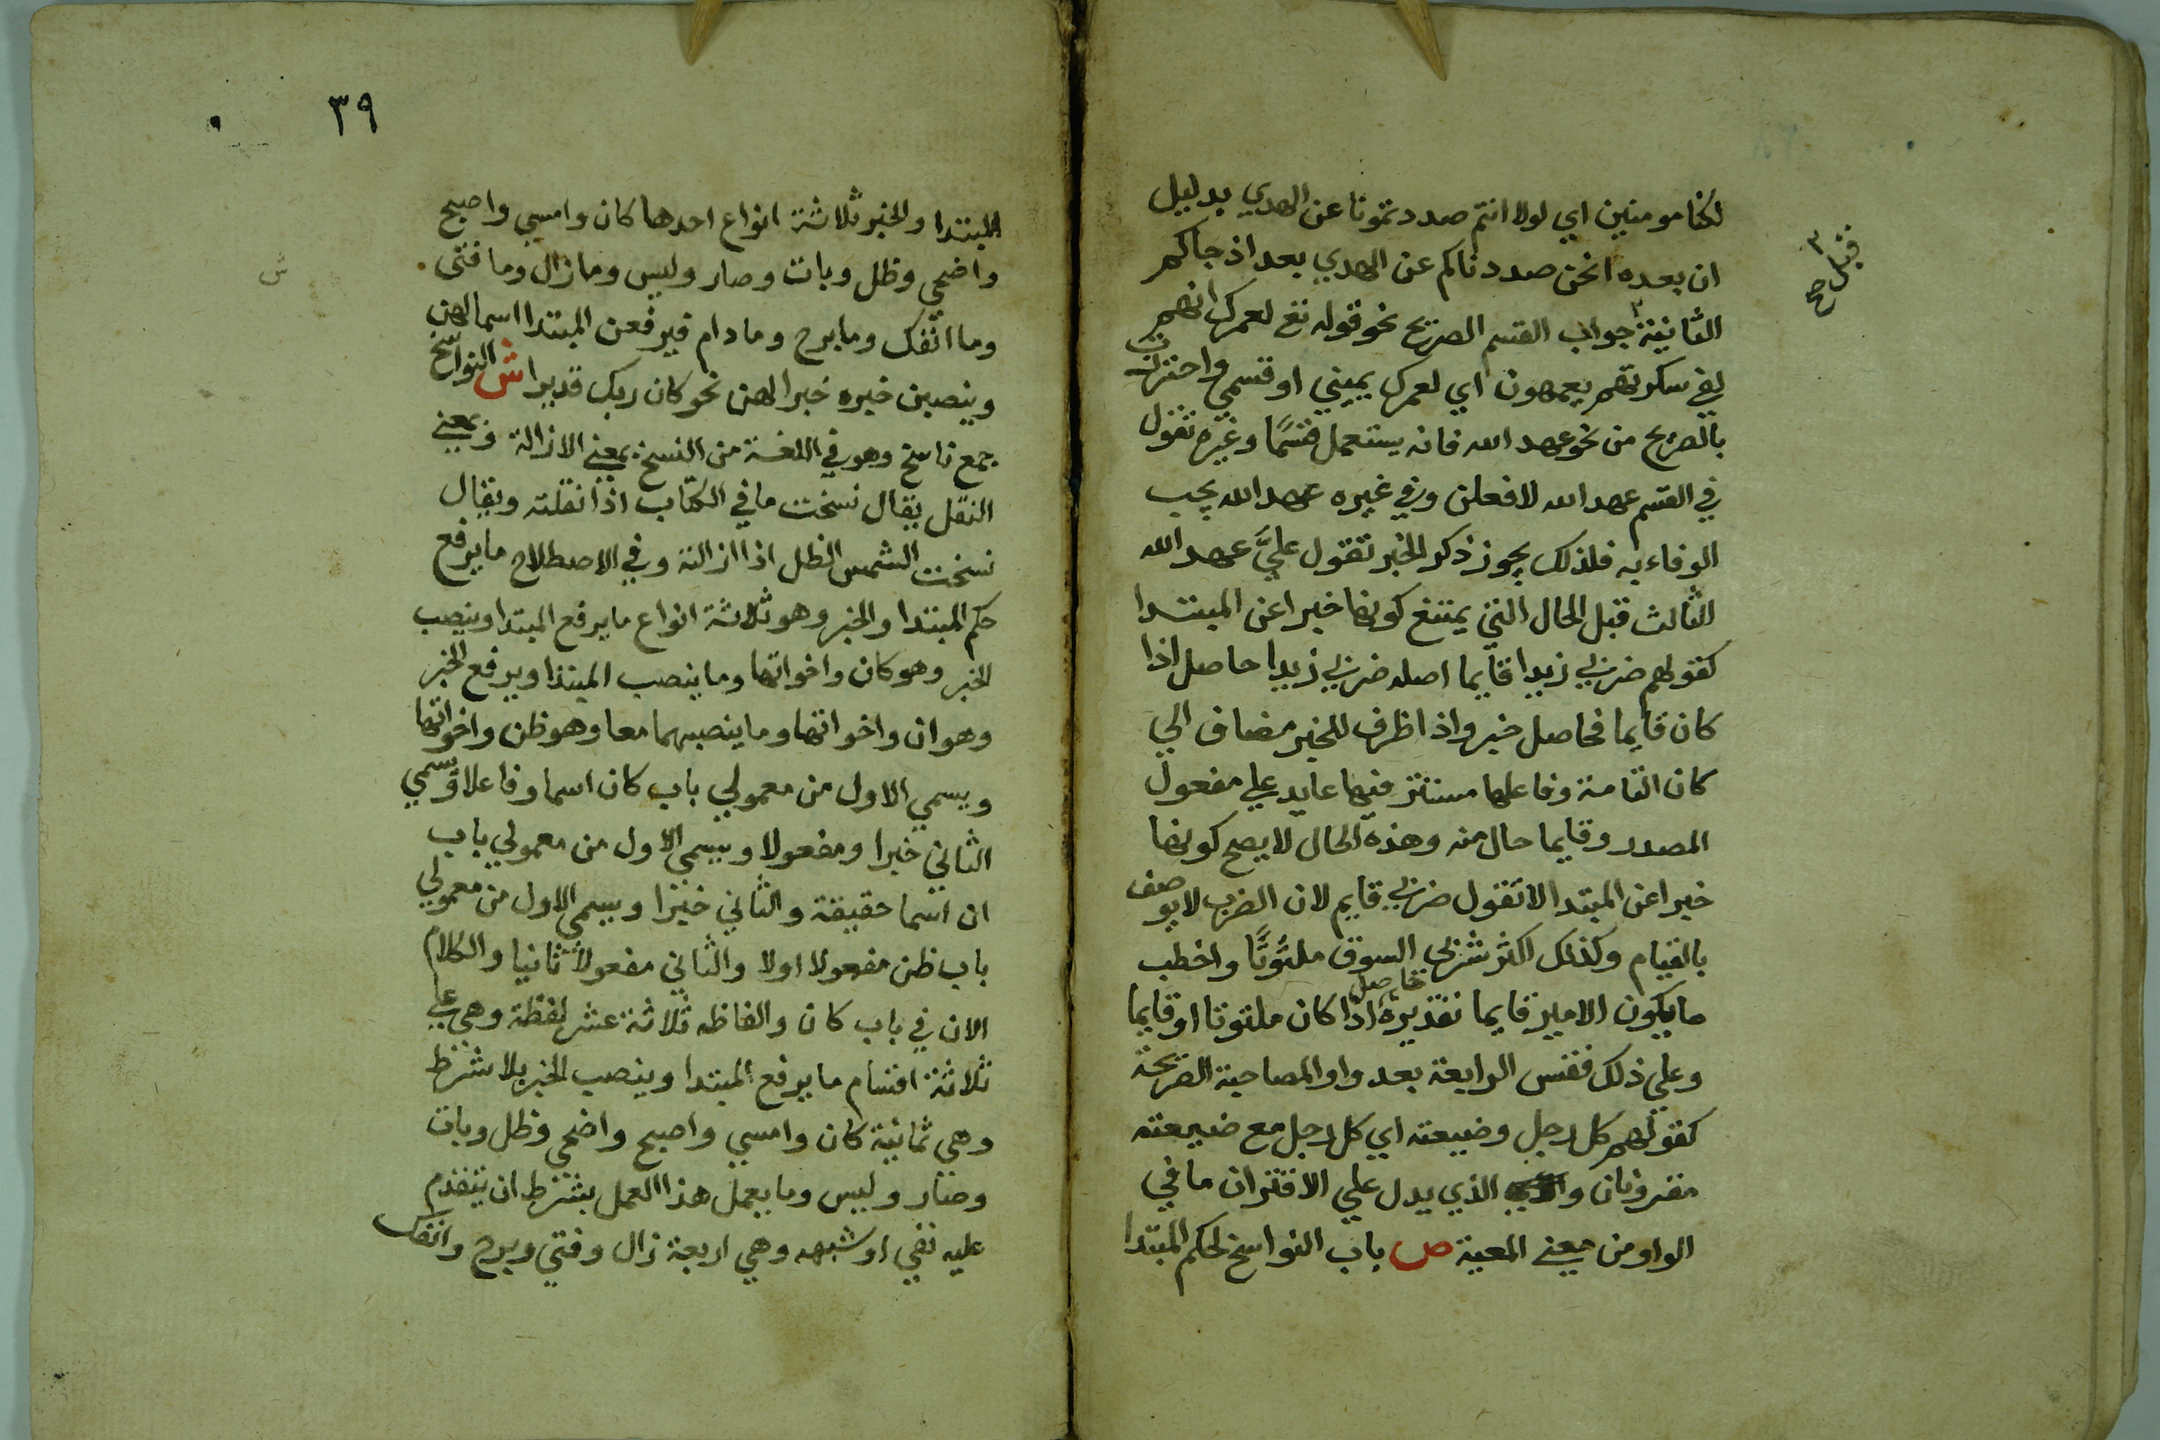 لكنا مومنين اي لولا انتم صددتمونا عن الهدي بدليل
ان بعده انحن صددناكم عن الهدي بعد اذ جاكم
الثانية جواب القسم الصريح نحو قوله تع لعمرك انهم
قبل صح
لفي سكرتهم يعمهون اي لعمرك يميني او قسمي واحترزت
بالصريح من نحو عهد الله فانه يستعمل قسمًا وغيره تقول
في القسم عهد الله لافعلن وفي غيره عهد الله يجب
الوفاء به فلذلك يجوز ذكر الخبر تقول عليَّ عهد الله
الثالث قبل الحال التي يمتنع كونها خبرا عن المبتدا
كقولهم ضربي زيدا قايما اصله ضربي زيدا حاصل اذا
كان قايما فحاصل خبر واذا ظرف للخبر مضاف الي
كان التامة وفاعلها مستتر فيها عايد علي مفعول
المصدر وقايما حال منه وهذه الحال لا يصح كونها
خبرا عن المبتدا لا تقول ضربي قايم لان الضرب لا يوصف
بالقيام وكذلك اكثر شربي السوق ملتُوتًا واخطب
ما يكون الامير قايما تقديره حاصل اذا كان ملتوتا او قايما
وعلي ذلك فقس الرابعة بعد واو المصاحبة الصريحة
كقولهم كل رجل وضيعته اي كل رجل مع ضيعته
مقرونان والذي يدل علي الاقتران ما في
الواو من معني المعية ص باب النواسخ لحكم المبتدا
٣٩
المبتدا والخبر ثلاثة انواع احدها كان وامسي واصبح
واضحي وظل وبات وصار وليس وما زال وما فتي
ش
وما انفك وما برح وما دام فيرفعن المبتدا اسما لهن
وينصبن خبره خبرا لهن نحو كان ربك قديرا ش النواسخ
جمع ناسخ وهو في اللغة من النسخ بمعني الازالة وبمعني
النقل يقال نسخت ما في الكتاب اذا نقلته ويقال
نسخت الشمس الظل اذا ازالته وفي الاصطلاح ما يرفع
حكم المبتدا والخبر وهو ثلاثة انواع ما يرفع المبتدا وينصب
الخبر وهو كان واخواتها وما ينصب المبتدا ويرفع الخبر
وهو ان واخواتها وما ينصبهما معا وهو ظن واخواتها
ويسمي الاول من معمولي باب كان اسما وفاعلا ويسمي
الثاني خبرا ومفعولا ويسمي الاول من معمولي باب
ان اسما حقيقة والثاني خبرا ويسمي الاول من معمولي
باب ظن مفعولا اولا والثاني مفعولا ثانيا والكلام
الان في باب كان والفاظه ثلاثة عشر لفظة وهي علي
ثلاثة اقسام ما يرفع المبتدا وينصب الخبر بلا شرط
وهي ثمانية كان وامسي واصبح واضحي وظل وبات
وصار وليس وما يعمل هذا العمل بشرط ان يتقدم
عليه نفي او شبهه وهي اربعة زال وفتي وبرح وانفك